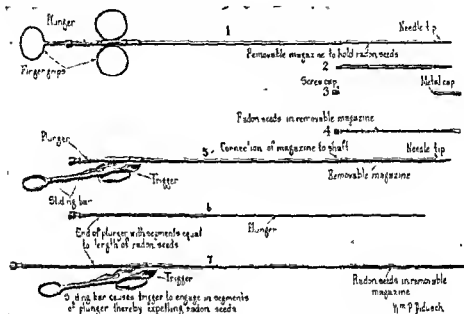 Plunger
1
Needle tip
Finger grips
Removable magazine to hold radon seeds
2
Screw cap
3
Metal cap
Radon seeds in removable magazine
4
Plunger
5
Connection of magazine to shaft
Needle tip
Sliding bar
Trigger
Removable magazine
6
End of plunger with segments equal
to length of radon seeds
Plunger
7
Trigger
Radon seeds in removable
magazine
Sliding bar causes trigger to engage in segments
of plunger thereby expelling radon seeds